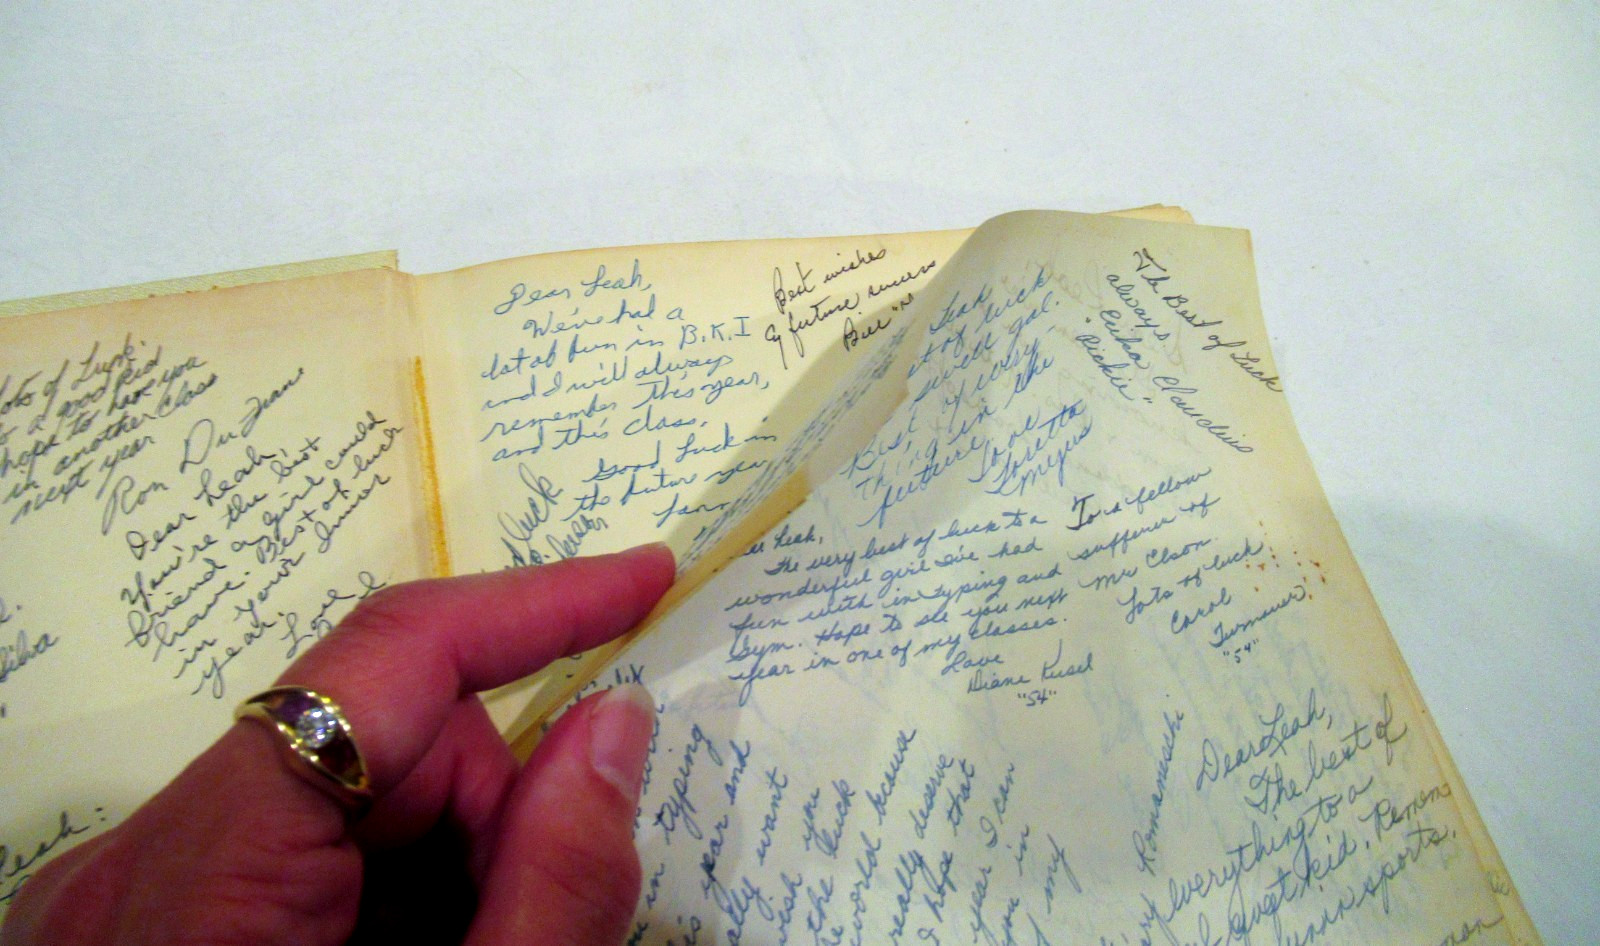 Lots of Luck
to a good kid
hope to have you
in another class
next year
Ron
Dear Leah
You're the best
friend a girl could
have. Best of luck
in your Junior
year.
Love
Silva
Leah:
Dear Leah,
We've had a
lot of fun in B.K.I
and I will always
remember this year,
and this class.
Good Luck in
the future
luck
Best wishes
future success
Bill
Leah
of luck
swell gal.
Best of
thing in the
future
Love
Loretta
Myers
The Best of Luck
always
Claudius
"Rickie"
Leah,
The very best of luck to a
wonderful girl I've had
fun with in typing and
Gym. Hope to see you next
year in one of my classes.
Love
Diane Kusel
"54"
To a fellow
sufferer of
Mr Elson.
Lots of luck
Carol
"54"
in typing
year and
want
wish you
the luck
world
really deserve
I hope that
year I can
in
my
Romaneski
Dear Leah,
The best of
everything to a
kid. Remem
sports.